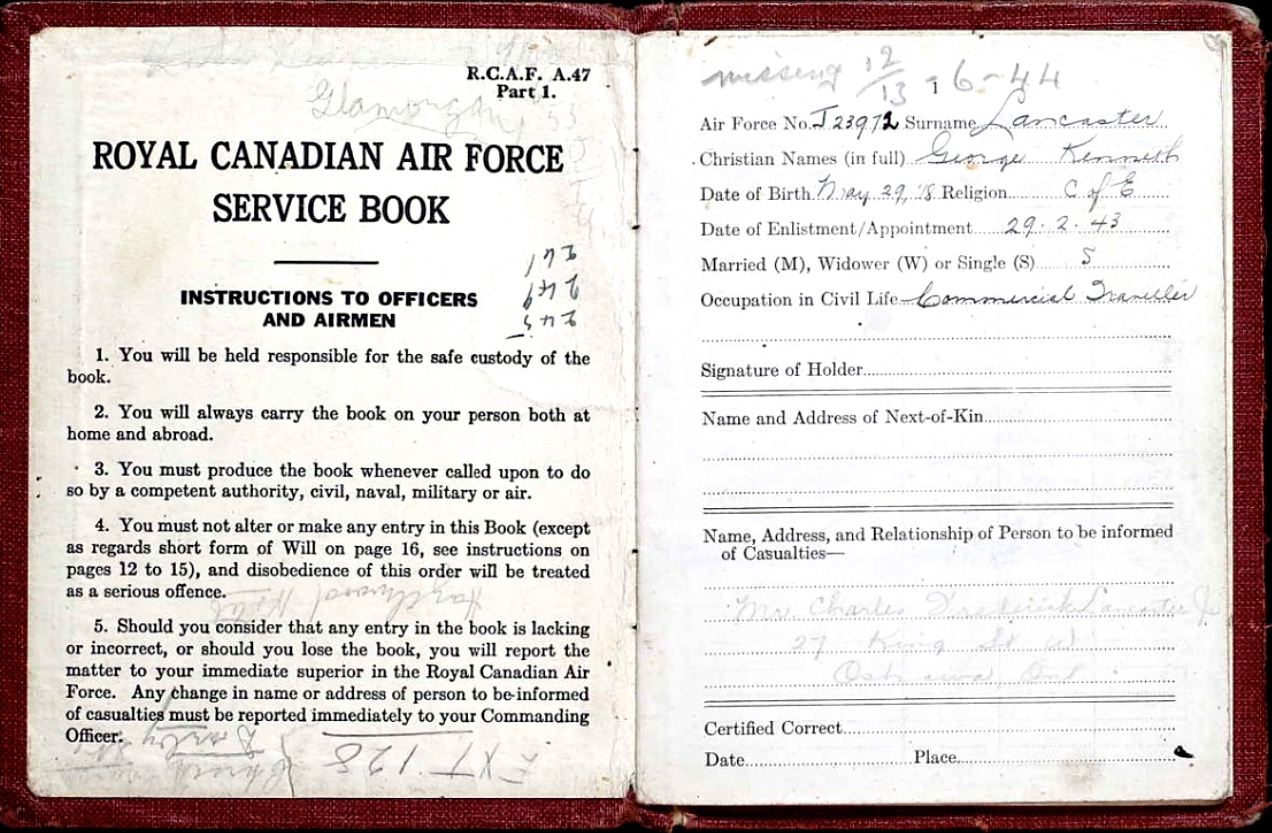 R.C.A.F. A.47
Part 1.
Glamorgan
ROYAL CANADIAN AIR FORCE
SERVICE BOOK
INSTRUCTIONS TO OFFICERS
AND AIRMEN
1. You will be held responsible for the safe custody of the
book.
2. You will always carry the book on your person both at
home and abroad.
3. You must produce the book whenever called upon to do
so by a competent authority, civil, naval, military or air.
4. You must not alter or make any entry in this Book (except
as regards short form of Will on page 16, see instructions on
pages 12 to 15), and disobedience of this order will be treated
as a serious offence.
5. Should you consider that any entry in the book is lacking
or incorrect, or should you lose the book, you will report the
matter to your immediate superior in the Royal Canadian Air
Force. Any change in name or address of person to be informed
of casualties must be reported immediately to your Commanding
Officer.
EXT. 128
missing 12/13-6-44
1
Air Force No. J23972 Surname Lancaster
Christian Names (in full) George Kenneth
Date of Birth May 29, '18 Religion C of E
Date of Enlistment/Appointment 29.2.43
Married (M), Widower (W) or Single (S) S
Occupation in Civil Life Commercial Traveller
Signature of Holder
Name and Address of Next-of-Kin
Name, Address, and Relationship of Person to be informed
of Casualties—
Mr. Charles Frederick Lancaster Jr
27 King St W
Oshawa, Ont
Certified Correct
Date Place